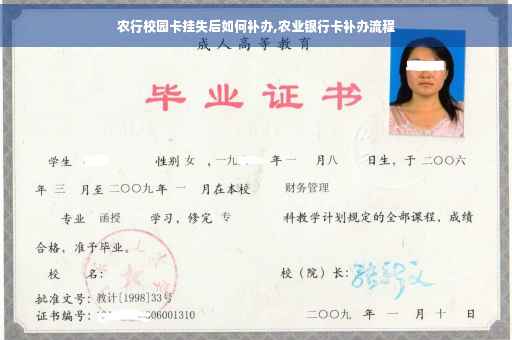 农行校园卡挂失后如何补办,农业银行卡补办流程
成人高等教育
毕业证书
学生 性别 女 ,一九 年 一 月八 日生,于二〇〇六
年 三 月至二〇〇九年 一 月在本校 财务管理
专业 函授 学习,修完 专 科教学计划规定的全部课程,成绩
合格,准予毕业。
校 名: 校(院)长:
批准文号:教计[1998]33号
证书编号: 6001310 二〇〇九 年 一 月 十 日